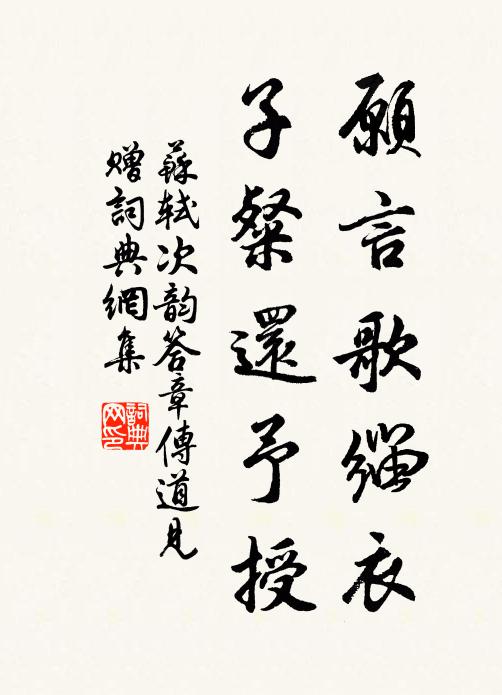 願言歌緇衣
子粲還予授
蘇軾次韵答章傳道見
贈詞典網集
詞典网印